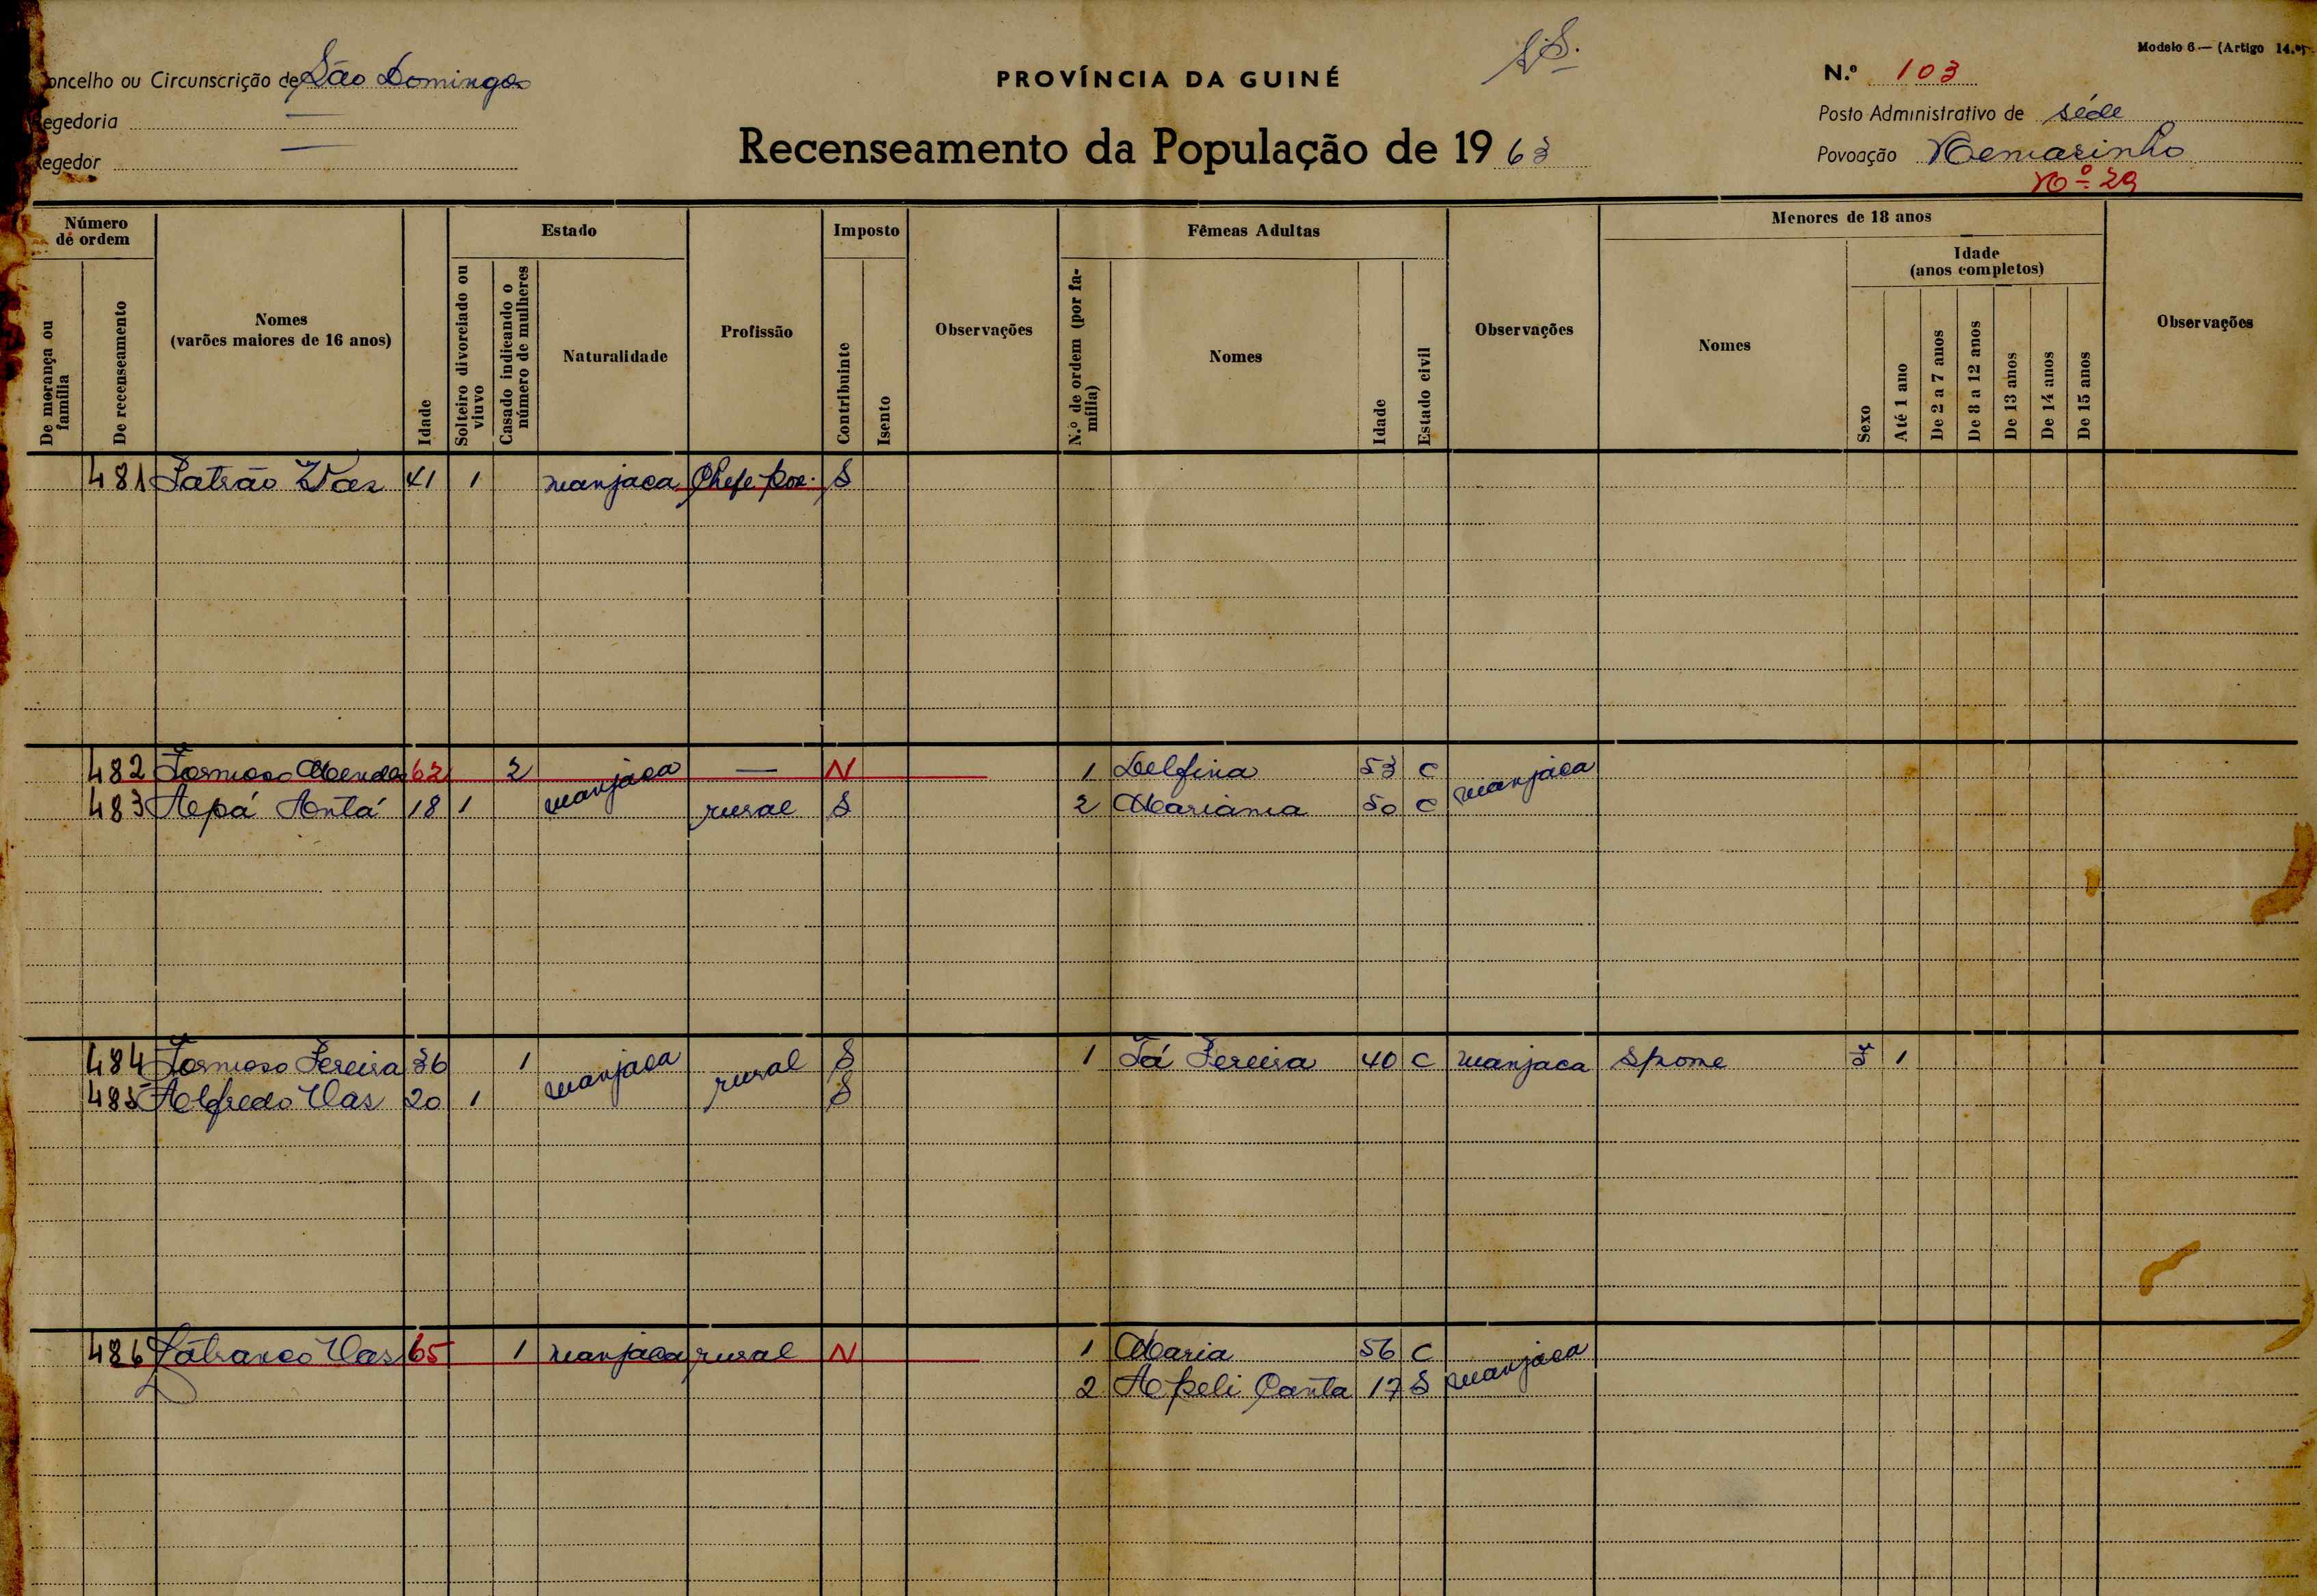 Modelo 6 — (Artigo 14.º)
Concelho ou Circunscrição de São Domingos
PROVÍNCIA DA GUINÉ
N.º 103
Regedoria —
Posto Administrativo de séde
Regedor —
Recenseamento da População de 1963
Povoação Nemarinho
Nº 29
Número de ordem
Estado
Imposto
Fêmeas Adultas
Menores de 18 anos
Idade
(anos completos)
De morança ou família
De recenseamento
Nomes
(varões maiores de 16 anos)
Idade
Solteiro divorciado ou viuvo
Casado indicando o número de mulheres
Naturalidade
Profissão
Contribuinte
Isento
Observações
N.º de ordem (por família)
Nomes
Idade
Estado civil
Observações
Nomes
Sexo
Até 1 ano
De 2 a 7 anos
De 8 a 12 anos
De 13 anos
De 14 anos
De 15 anos
Observações
481 Patrão Vaz 41 1 manjaca Chefe pov. S
482 Formoso Menda 62 2 manjaca — N 1 Delfina 53 C manjaca
483 Apá Antá 18 1 rural S 2 Mariama 50 C
484 Formoso Pereira 36 1 manjaca rural S 1 Tá Pereira 40 C manjaca Spone F 1
485 Alfredo Vas 20 1 S
486 Patranco Vas 65 1 manjaca rural N 1 Maria 56 C manjaca
2 Apeli Canta 17 S